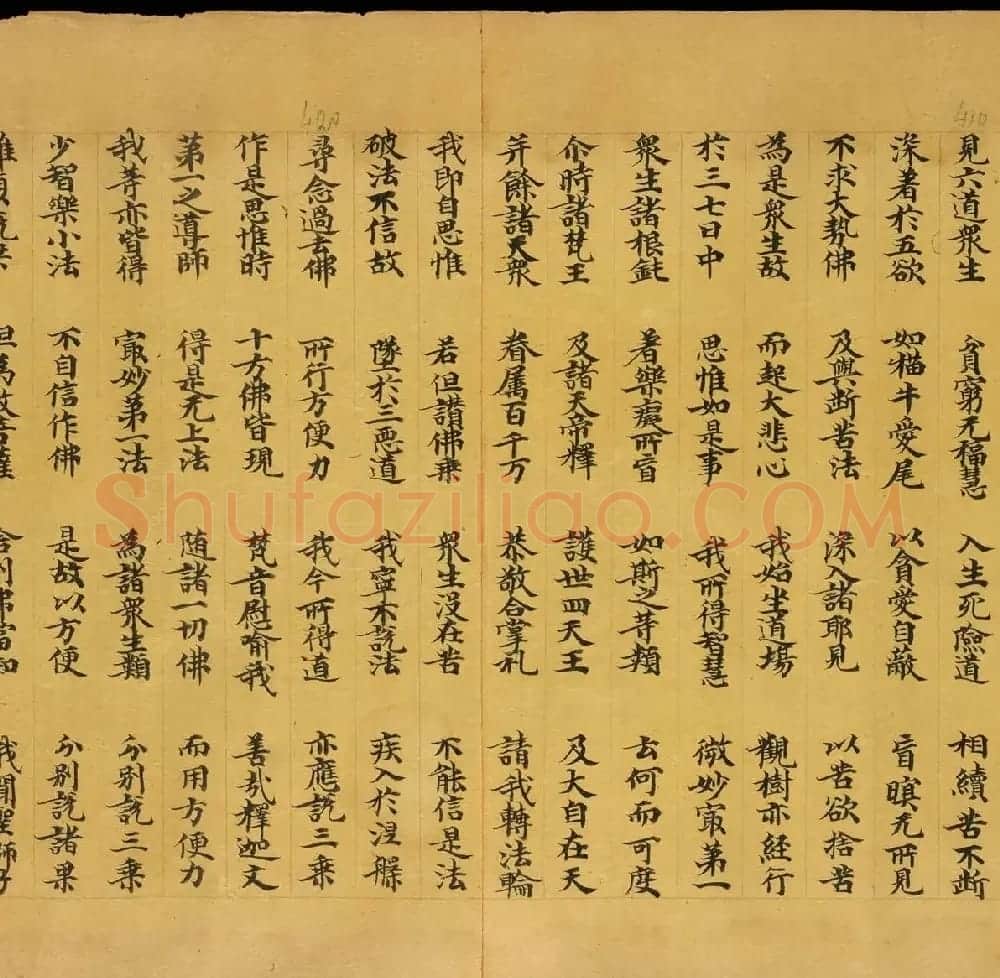 見六道衆生 貧窮无福慧 入生死險道 相續苦不斷
深著於五欲 如猫牛愛尾 以貪愛自蔽 盲瞑无所見
不求大勢佛 及與断苦法 深入諸耶見 以苦欲捨苦
為是衆生故 而起大悲心 我始坐道場 觀樹亦經行
於三七日中 思惟如是事 我所得智慧 微妙寂第一
衆生諸根鈍 著樂癡所盲 如斯之等類 云何而可度
尒時諸梵王 及諸天帝釋 護世四天王 及大自在天
并餘諸天衆 眷属百千万 恭敬合掌礼 請我轉法輪
我即自思惟 若但讃佛乗 衆生没在苦 不能信是法
破法不信故 墜於三悪道 我寧不說法 疾入於涅槃
尋念過去佛 所行方便力 我今所得道 亦應說三乗
作是思惟時 十方佛皆現 梵音慰喻我 善哉釋迦文
第一之導師 得是无上法 随諸一切佛 而用方便力
我等亦皆得 寂妙第一法 為諸衆生類 分別說三乗
少智樂小法 不自信作佛 是故以方便 分別說諸果
420
410
Shufaziliao.COM